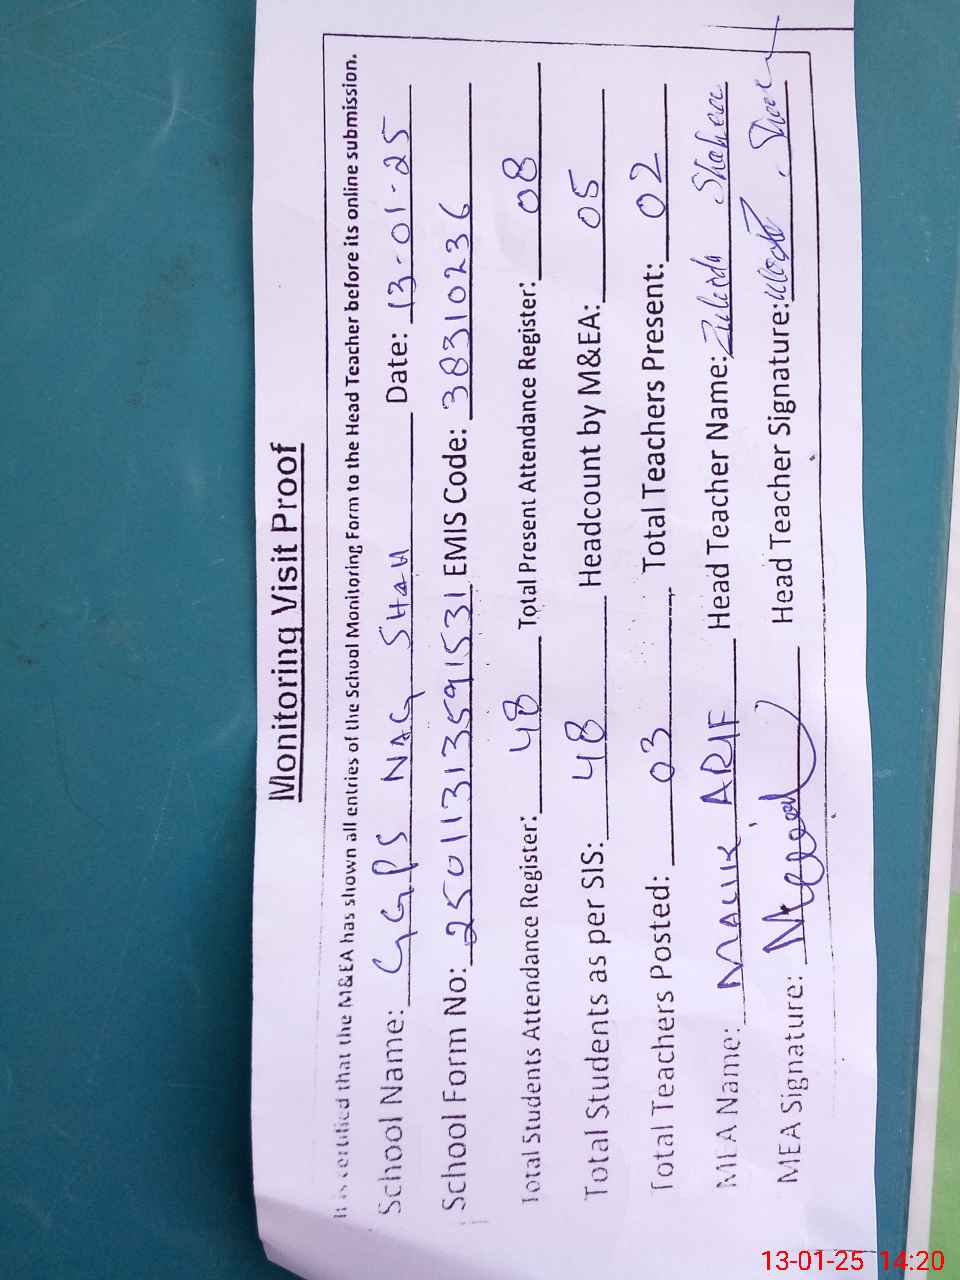 Monitoring Visit Proof
It is certified that the M&EA has shown all entries of the School Monitoring Form to the Head Teacher before its online submission.
School Name: GGPS NAG SHAH Date: 13-01-25
School Form No: 25011313591531 EMIS Code: 38310236
Total Students Attendance Register: 48 Total Present Attendance Register: 08
Total Students as per SIS: 48 Headcount by M&EA: 05
Total Teachers Posted: 03 Total Teachers Present: 02
MEA Name: MALIK ARIF Head Teacher Name: Shaheen
MEA Signature: Head Teacher Signature:
13-01-25 14:20